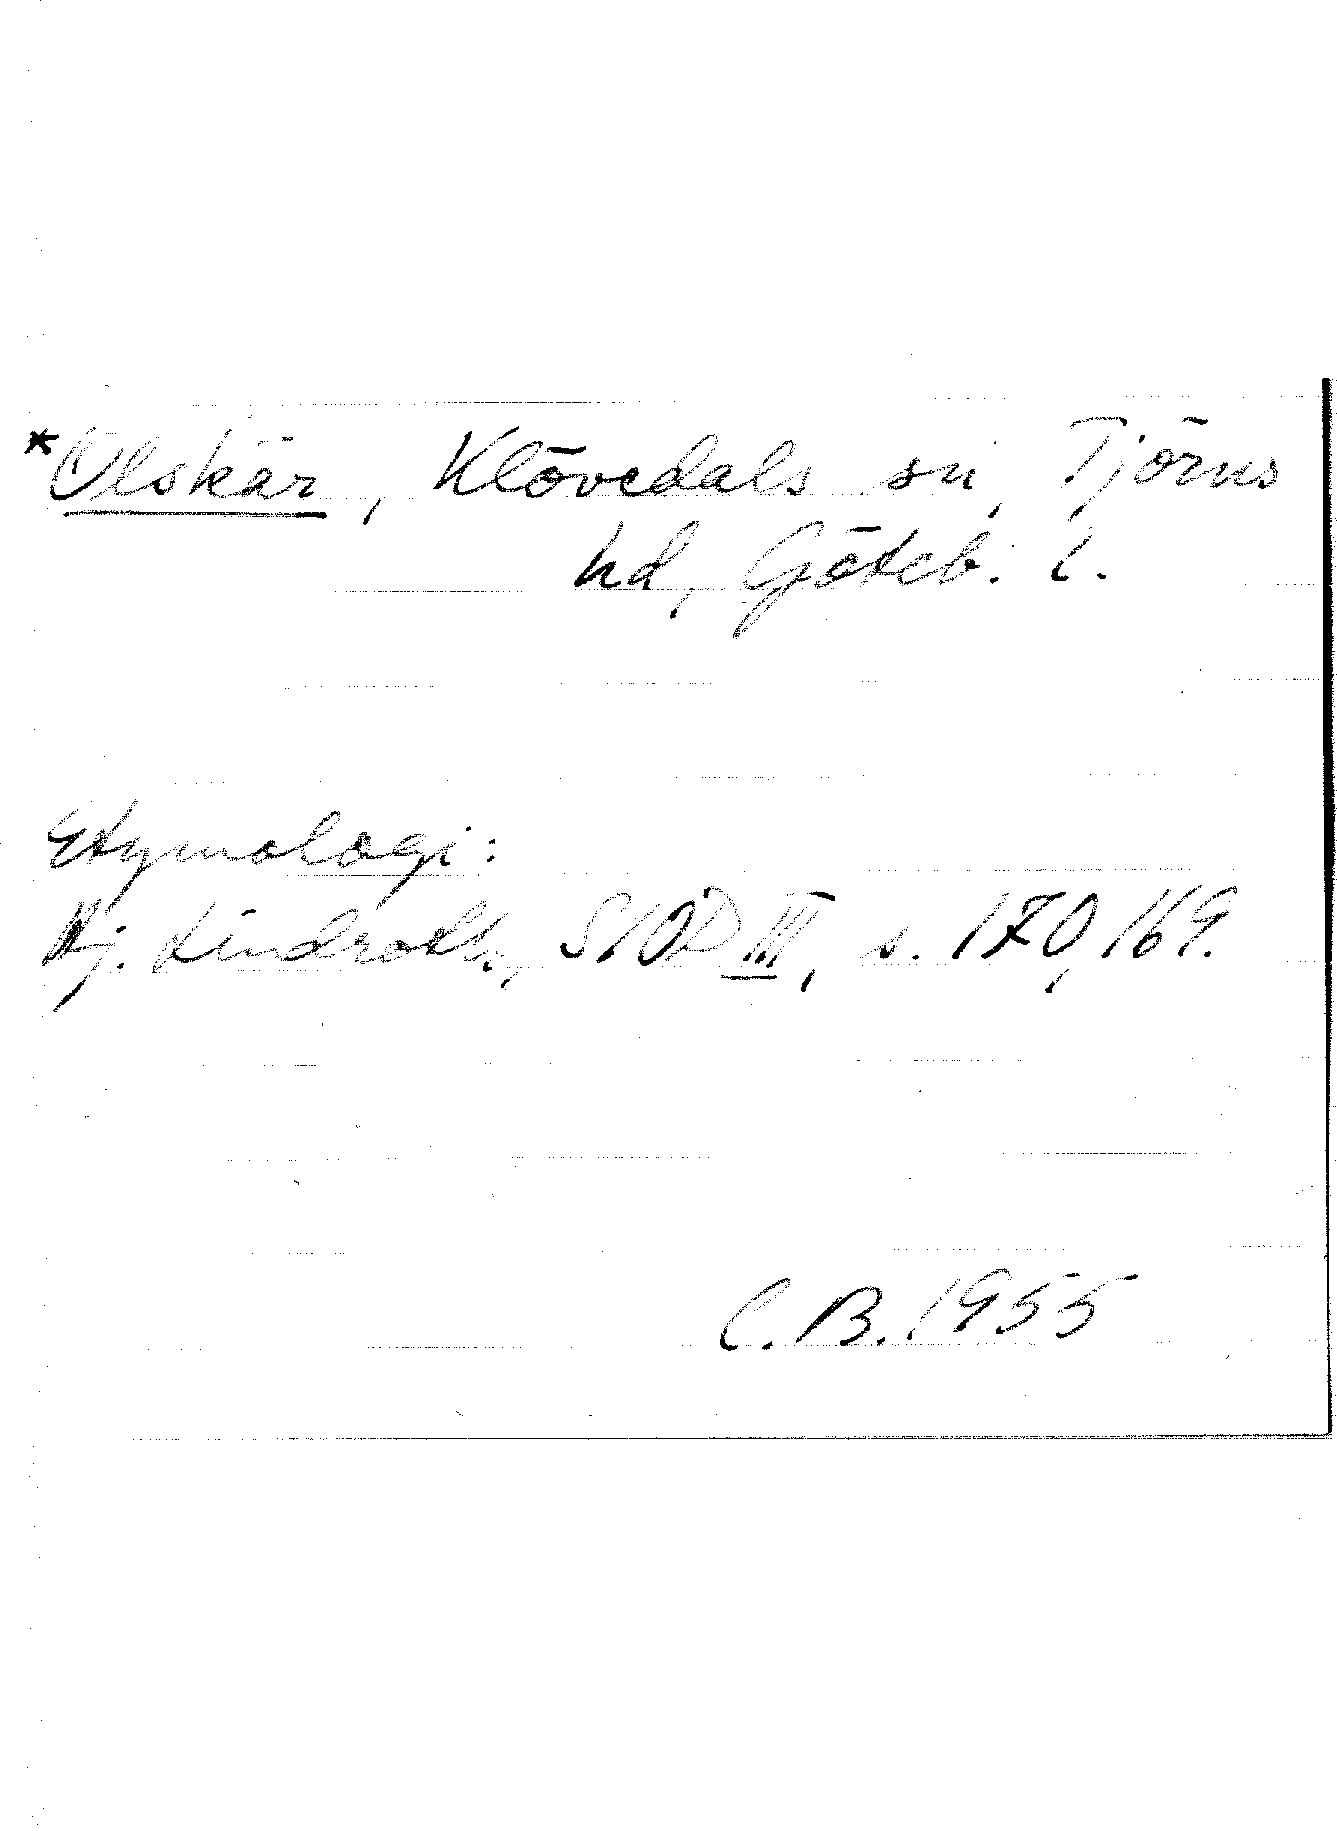 *Ulskär, Klövedals sn, Tjörns
hd, Göteb. l.
Etymologi:
Hj. Lindroth, SIOD III, s. 170, 169.
C.B. 1955